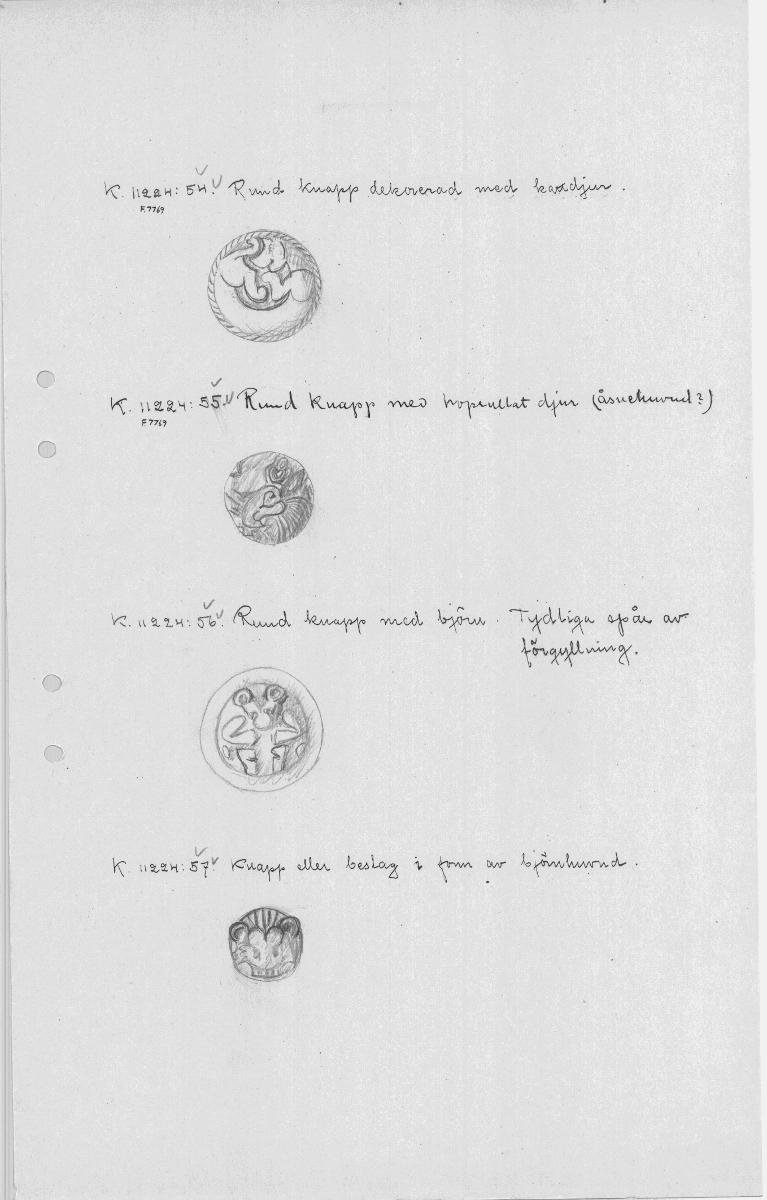 K. 11224:54. Rund knapp dekorerad med djur.
F. 7769
K. 11224:55. Rund knapp med hoprullat djur (åsnehuvud?)
F. 7769
K. 11224:56. Rund knapp med björn. Tydliga spår av
förgyllning.
K. 11224:57. Knapp eller beslag i form av björnhuvud.